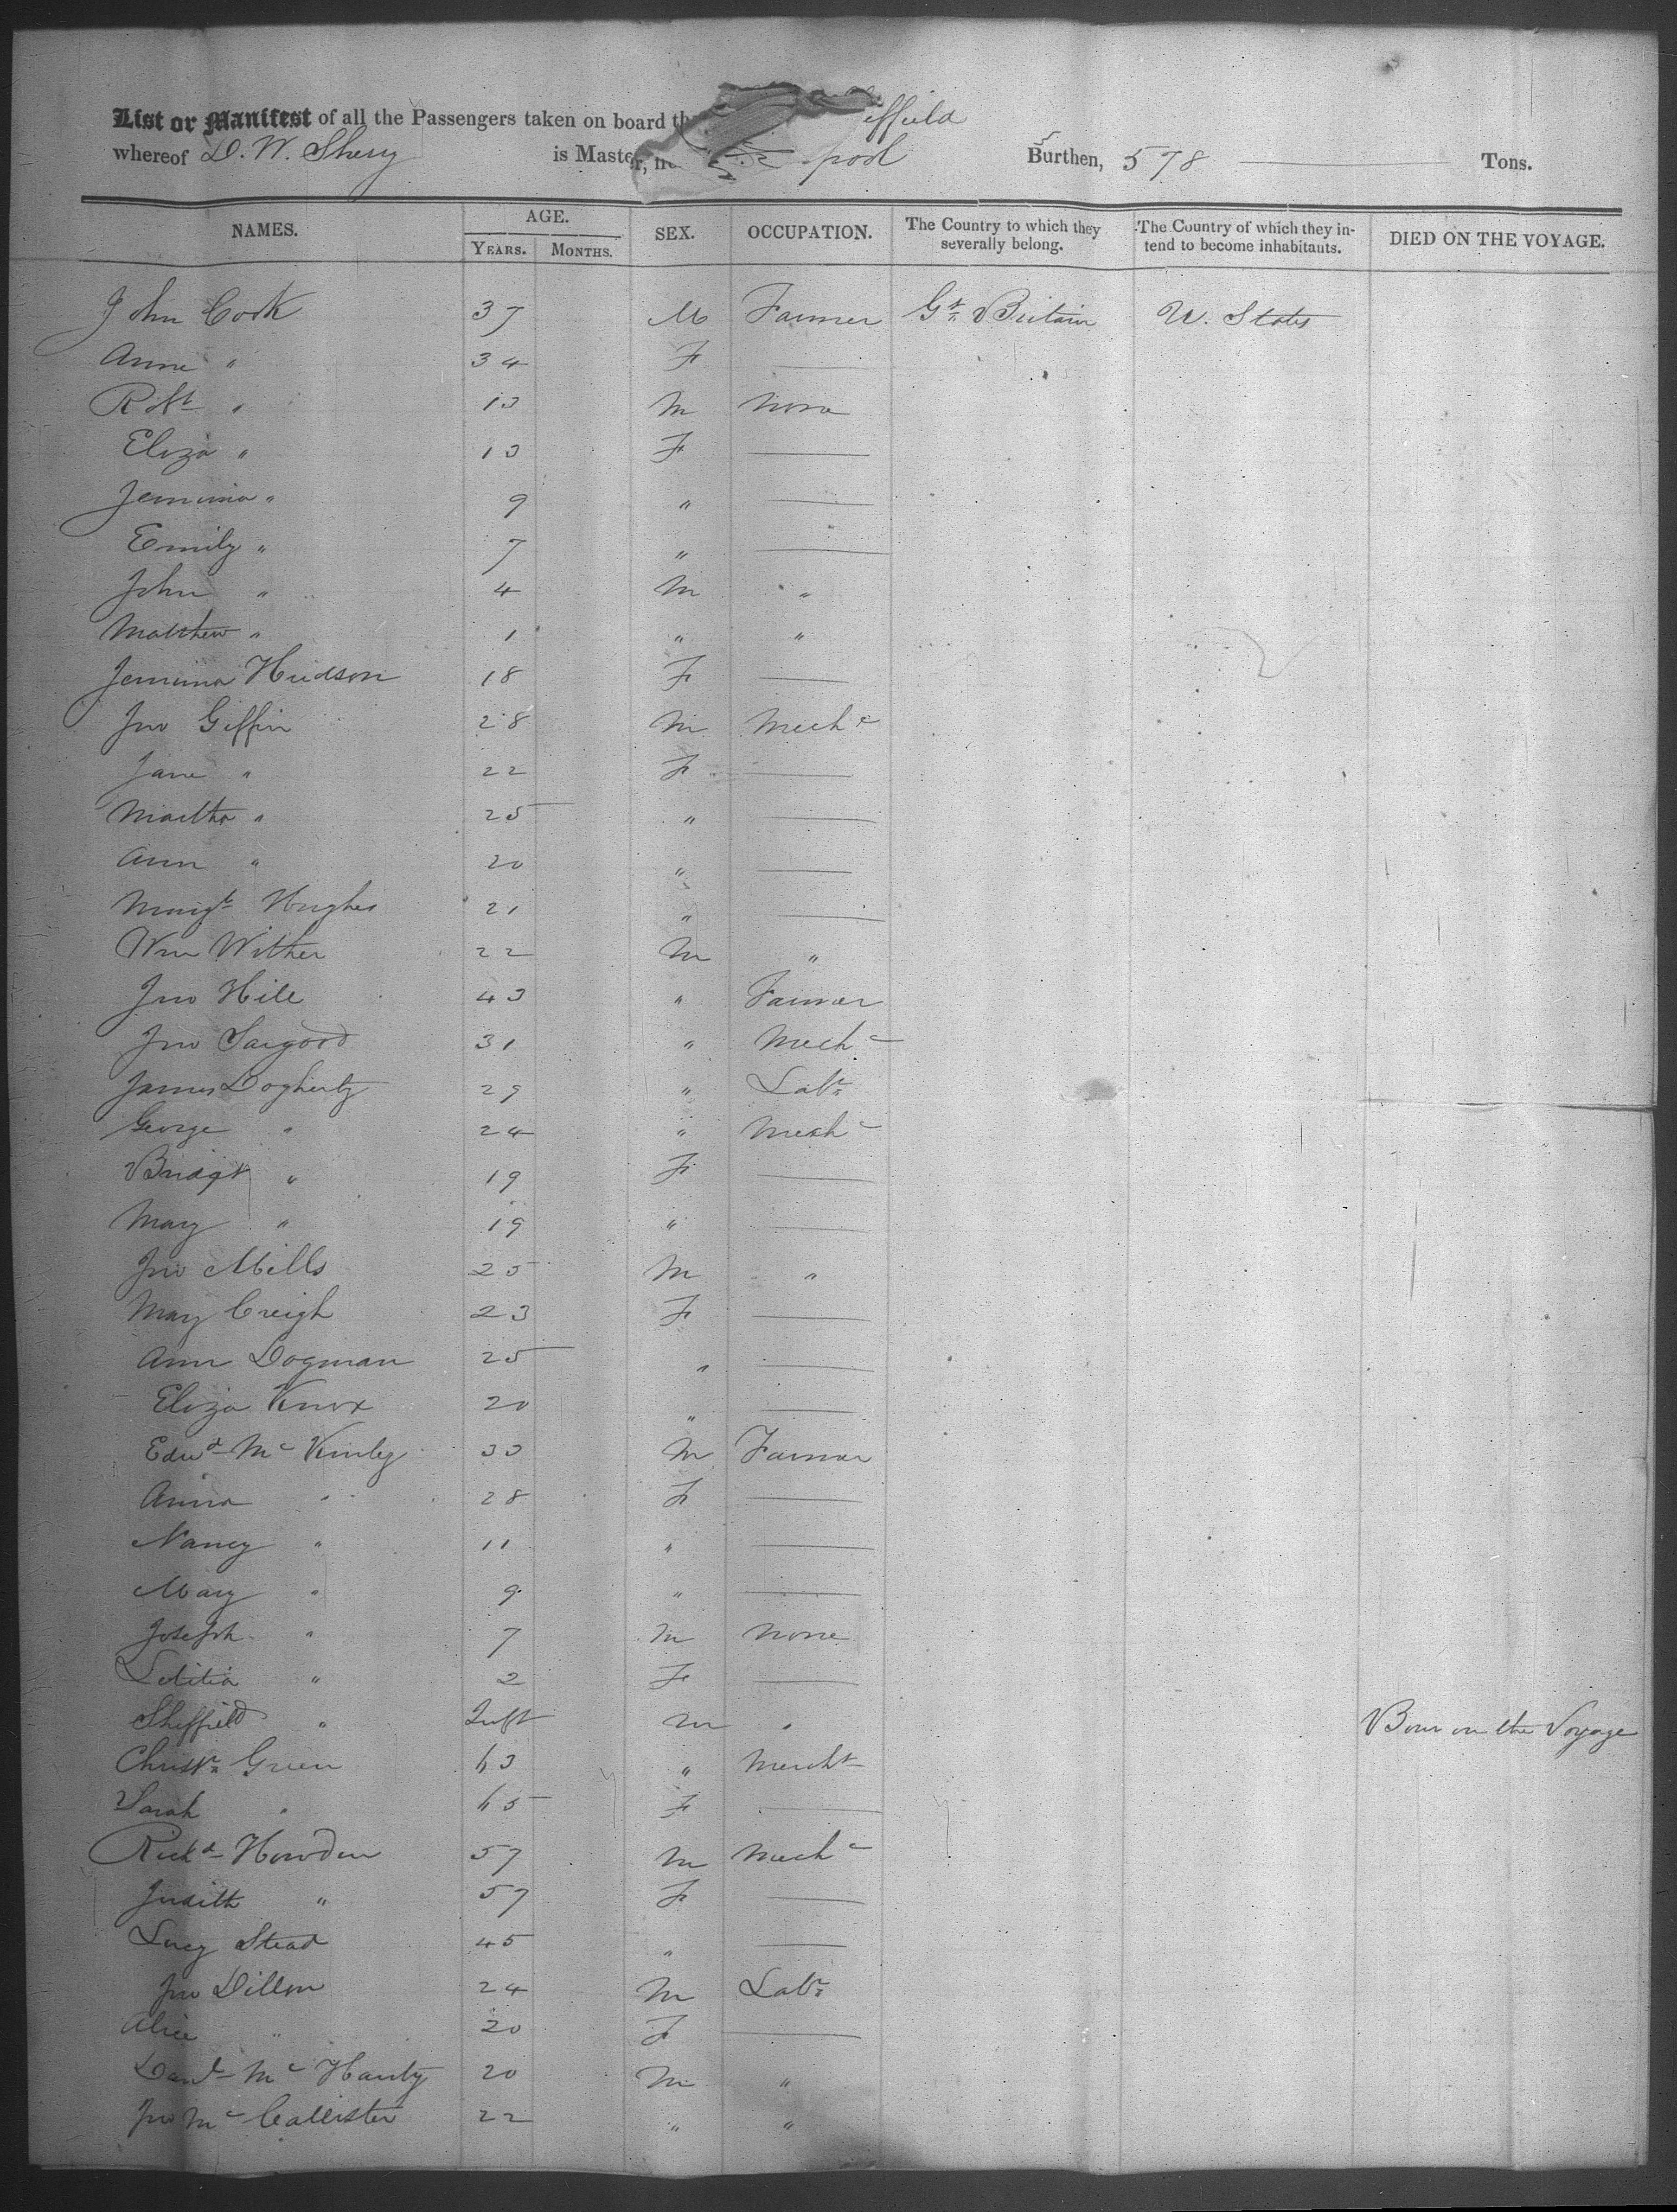 List or Manifest of all the Passengers taken on board th effield
whereof D. W. Shery is Master, pool Burthen, 578 Tons.
NAMES. AGE. SEX. OCCUPATION. The Country to which they severally belong. The Country of which they intend to become inhabitants. DIED ON THE VOYAGE.
YEARS. MONTHS.
John Cook 37 M Farmer Gt Britain U. States
Anne " 34 F —
Robt " 13 M None
Eliza " 13 F —
Jemima " 9 " —
Emily " 7 " —
John " 4 M "
Matthew " 1 " "
Jemima Hudson 18 F —
Jno Giffin 28 M Mechc
Jane " 22 F —
Martha " 25 " —
Ann " 20 " —
Margt Hughes 21 " —
Wm Wither 22 M "
Jno Hill 43 " Farmer
Jno Sargood 31 " Mechc
James Dogherty 29 " Labr
George " 24 " Mechc
Bridgt " 19 F —
Mary " 19 " —
Jno Mills 25 M "
Mary Creigh 23 F —
Ann Dogman 25 " —
Eliza Knox 20 " —
Edwd McKinley 33 M Farmer
Anna " 28 F —
Nancy " 11 " —
Mary " 9 " —
Joseph " 7 M None
Letitia " 2 F —
Sheffield " Inft M " Born on the Voyage
Christr Green 63 " Mercht
Sarah " 65 F —
Richd Howden 57 M Mechc
Judith " 57 F —
Lucy Stead 45 " —
Jno Dillon 24 M Labr
Alice " 20 F —
Danl McHarty 20 M "
Jno McCallister 22 " "